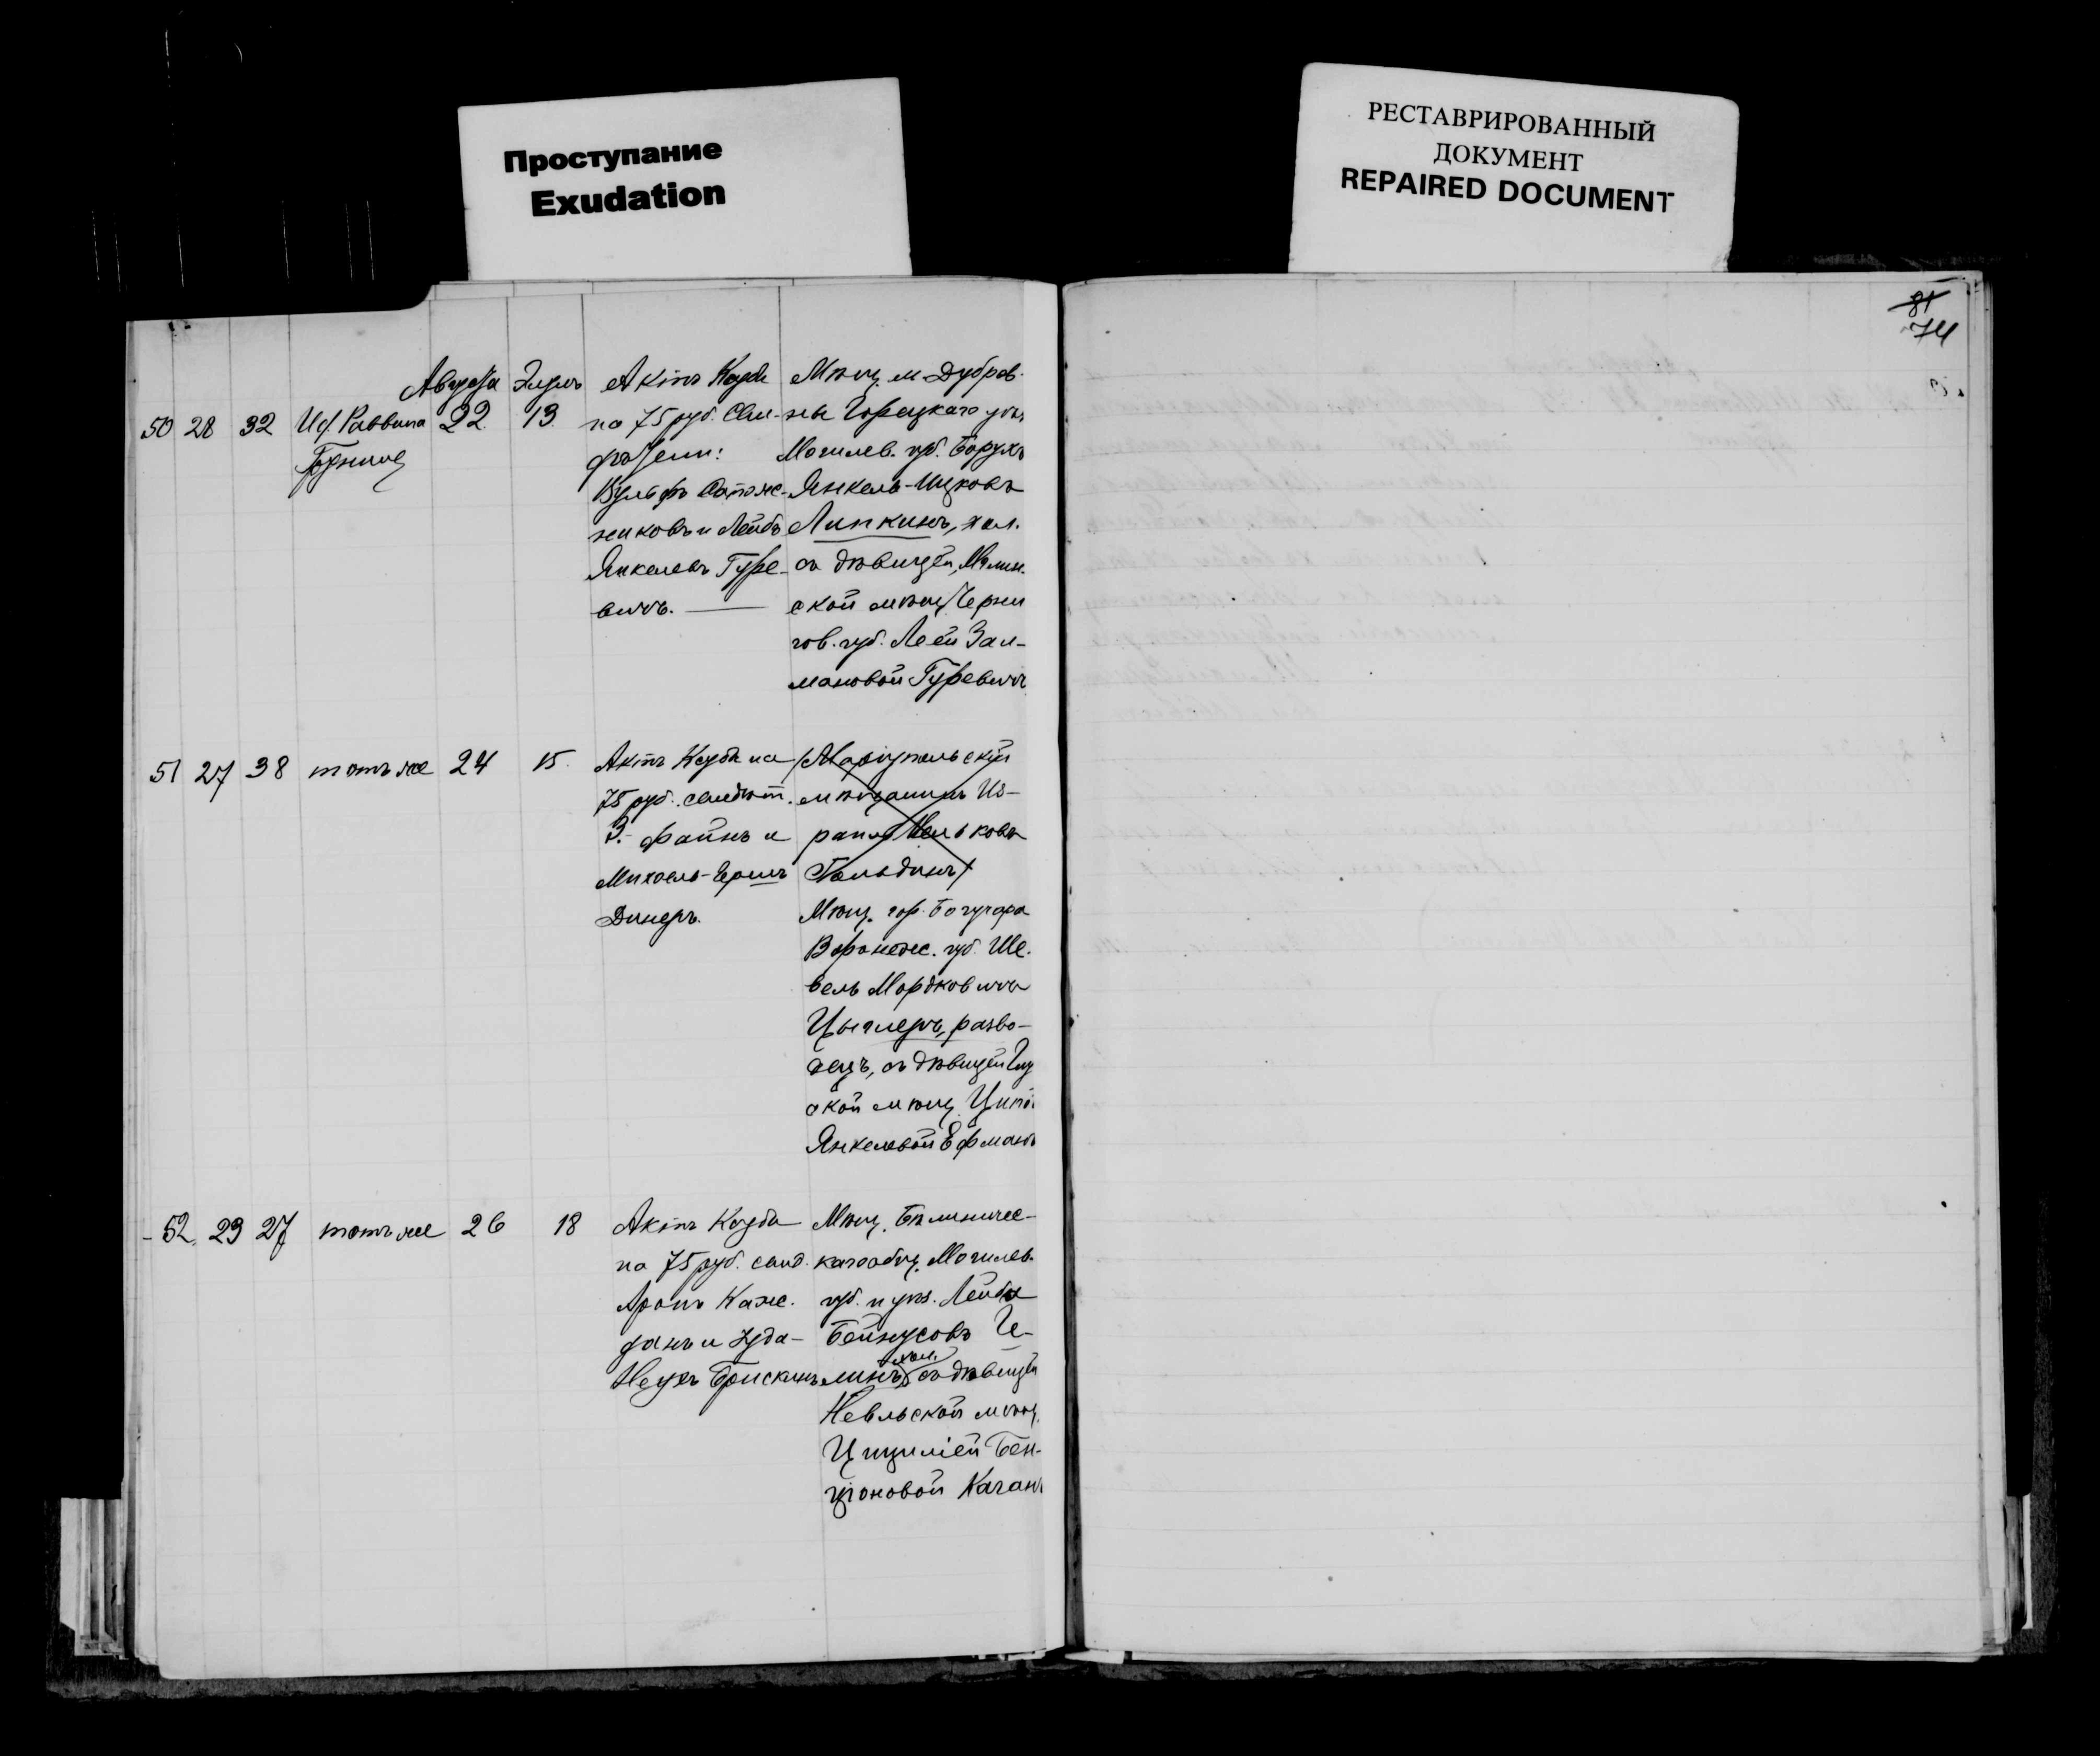 Проступание
Exudation
РЕСТАВРИРОВАННЫЙ
ДОКУМЕНТ
REPAIRED DOCUMENT
81
74
Августа Элулъ
50 28 32 Исп. Раввина 22. 13.
Актъ Кседи
на 75 руб. Сви-
дѣтели:
Вульфъ Сапож-
никовъ и Лейбъ
Янкелевъ Гуре-
вичъ. —
Мѣщ. м. Дубров-
ны Горецкаго уѣз.
Могилев. губ. Борухъ
Янкель-Ицковъ
Липкинъ, хол.
съ дѣвицей, Мглин-
ской мѣщ. Черни
гов. губ. Леей Зал-
мановой Гуревичъ
51 27 38 тотъ же 24 15.
Актъ Ксуба на
75 руб. свидѣт.
З. Файнъ и
Михоель-Гершъ
Динеръ.
(Маріупольскій
мѣщанинъ Из-
раиль
Гольдинъ)
Мѣщ. гор. Богучара
Воронеж. губ. Ше-
вель Мордковичъ
Цыглеръ, разво-
децъ, съ дѣвицей
ской мѣщ.
Янкелевой Ефманъ
52. 23 27 тотъ же 26 18
Актъ Ксуба
на 75 руб. свид.
Аронъ Каж-
данъ и Іуда-
Неухъ Брискинъ
Мѣщ. Бѣлыничес-
каго общ. Могилев.
губ. и уѣз. Лейба
Бейнусовъ Ге-
линъ, хол. съ дѣвицей
Невльской мѣщ.
Цициліей Бен-
ціоновой Каганъ